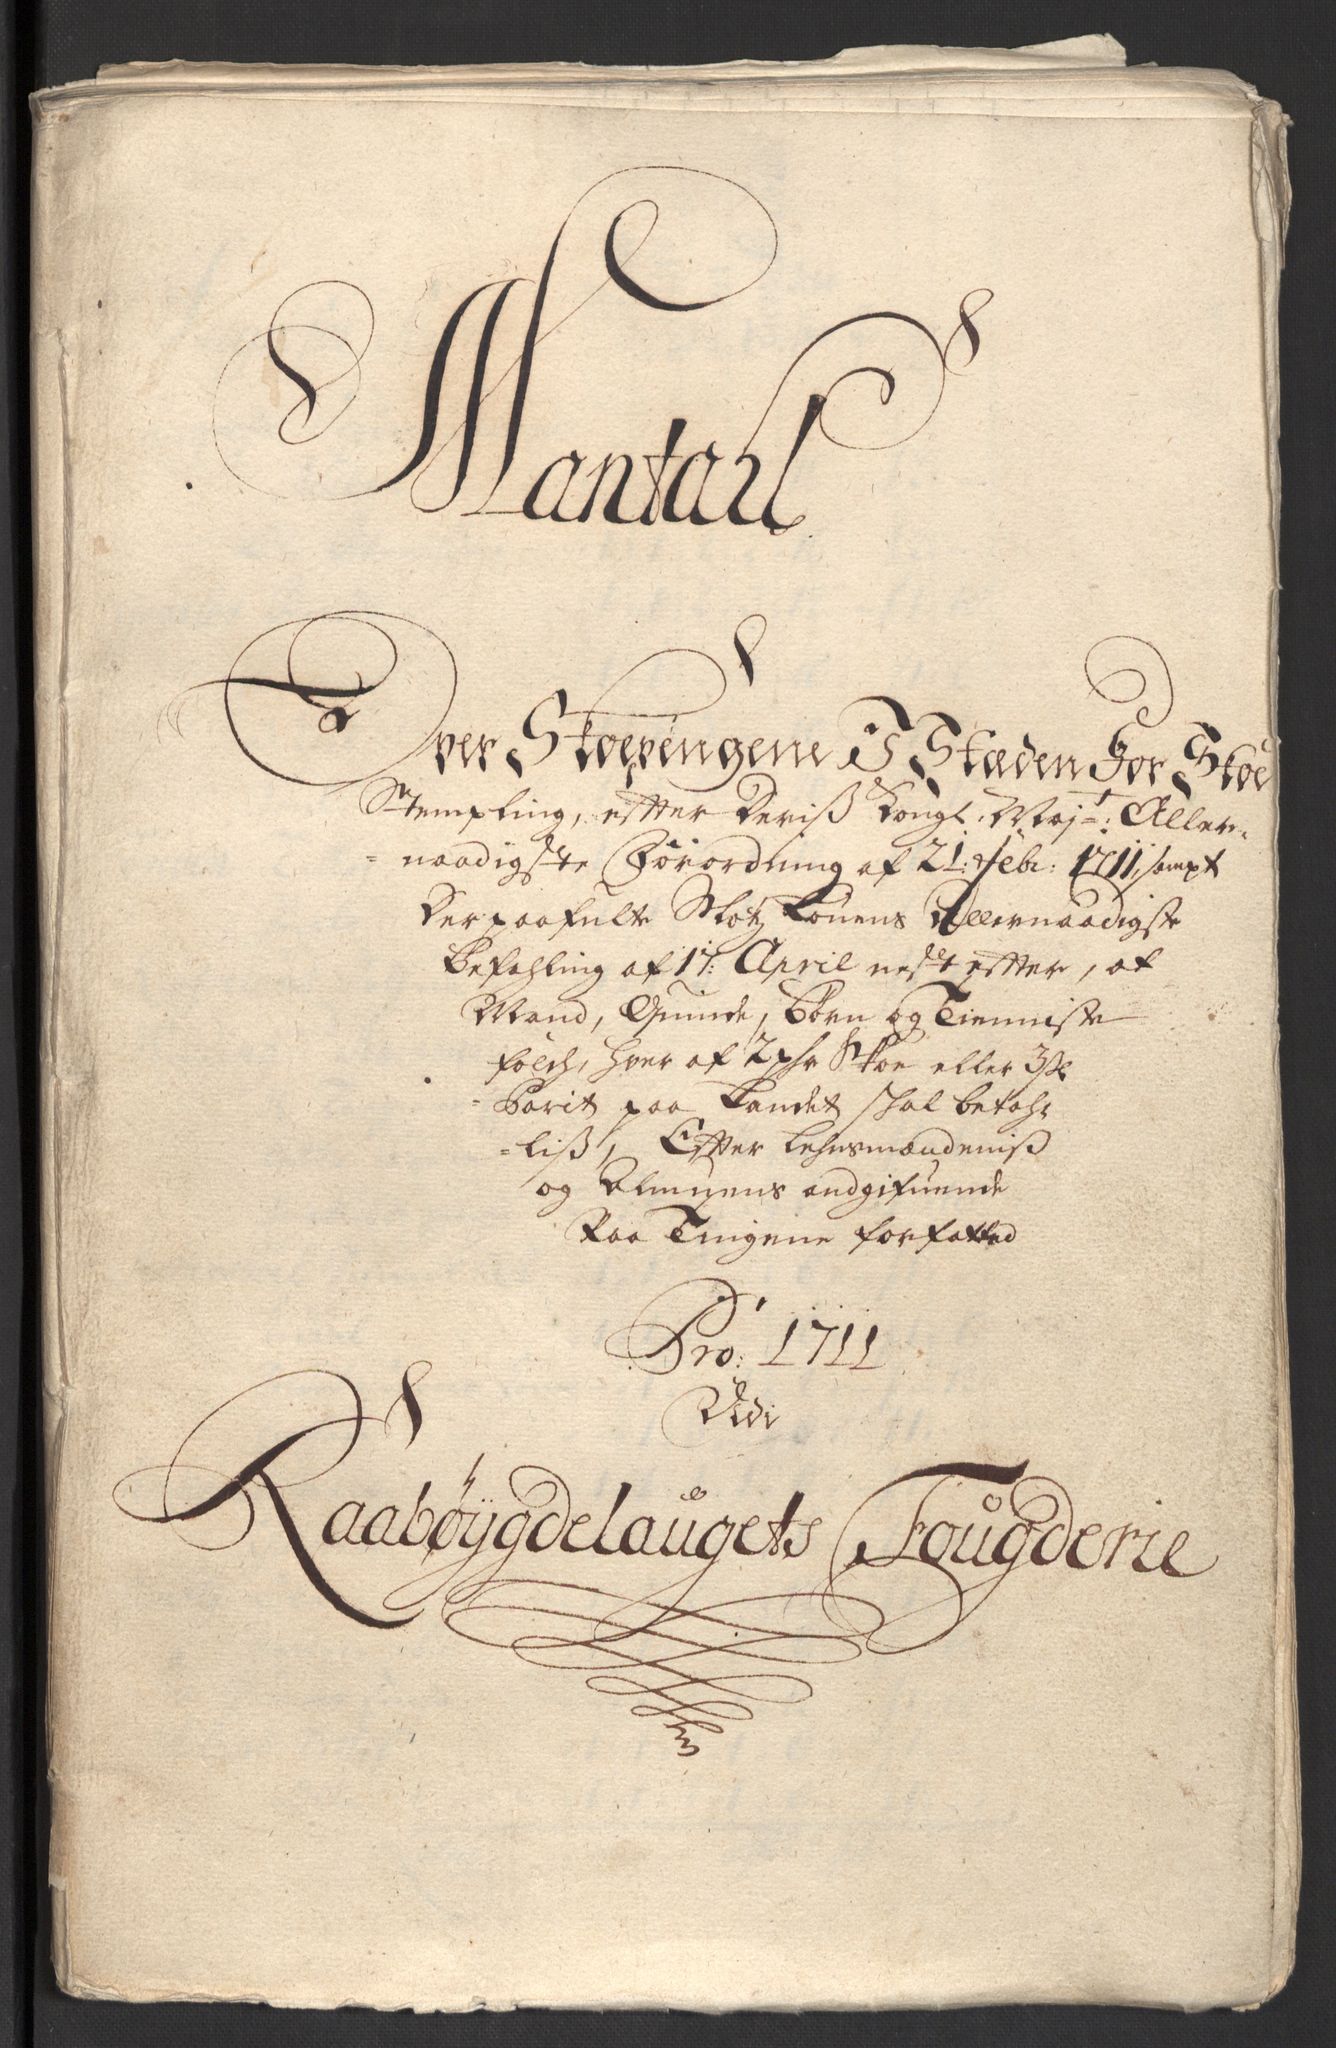 Mantahl
Over Skoepengene I Stæden for Skoe
Stempling, effter Deriß Kongl. Maj.t: Aller-
naadigste Forordning af 21: Febr: 1711, sampt
Derpaafulte Slotz Lovens Allernaadigste
Befahling af 17: April nest effter, af
Mand, Quinde, Børn og Tienniste
folch, hver af 2 phr Skoe eller 3 s
Parit paa Landet skal betah-
-liß, Effter Lehnsmændeniß
og Almuens andgifuende
Paa Tingene forfatted
Pro: 1711
Udi
Raabøygdelaugets Fougderie